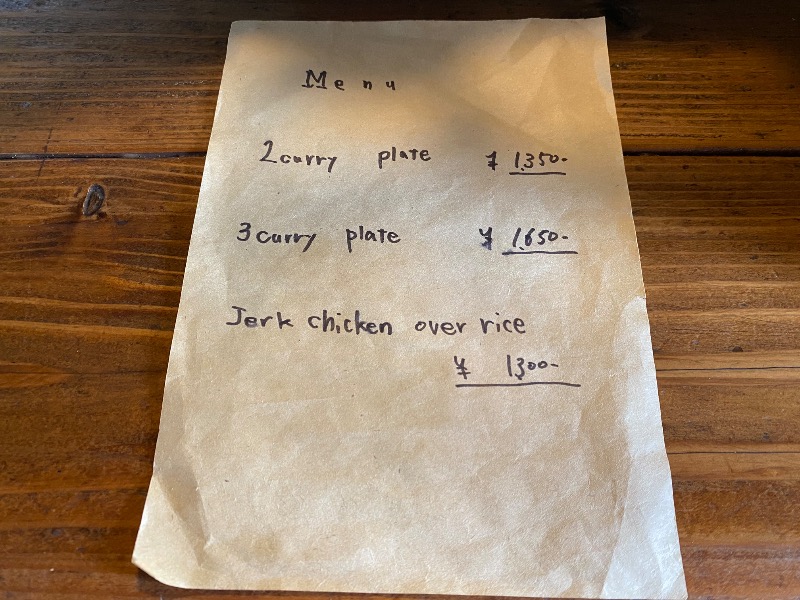 Menu
2 curry plate ¥ 1,350-
3 curry plate ¥ 1,650-
Jerk chicken over rice
¥ 1,300-